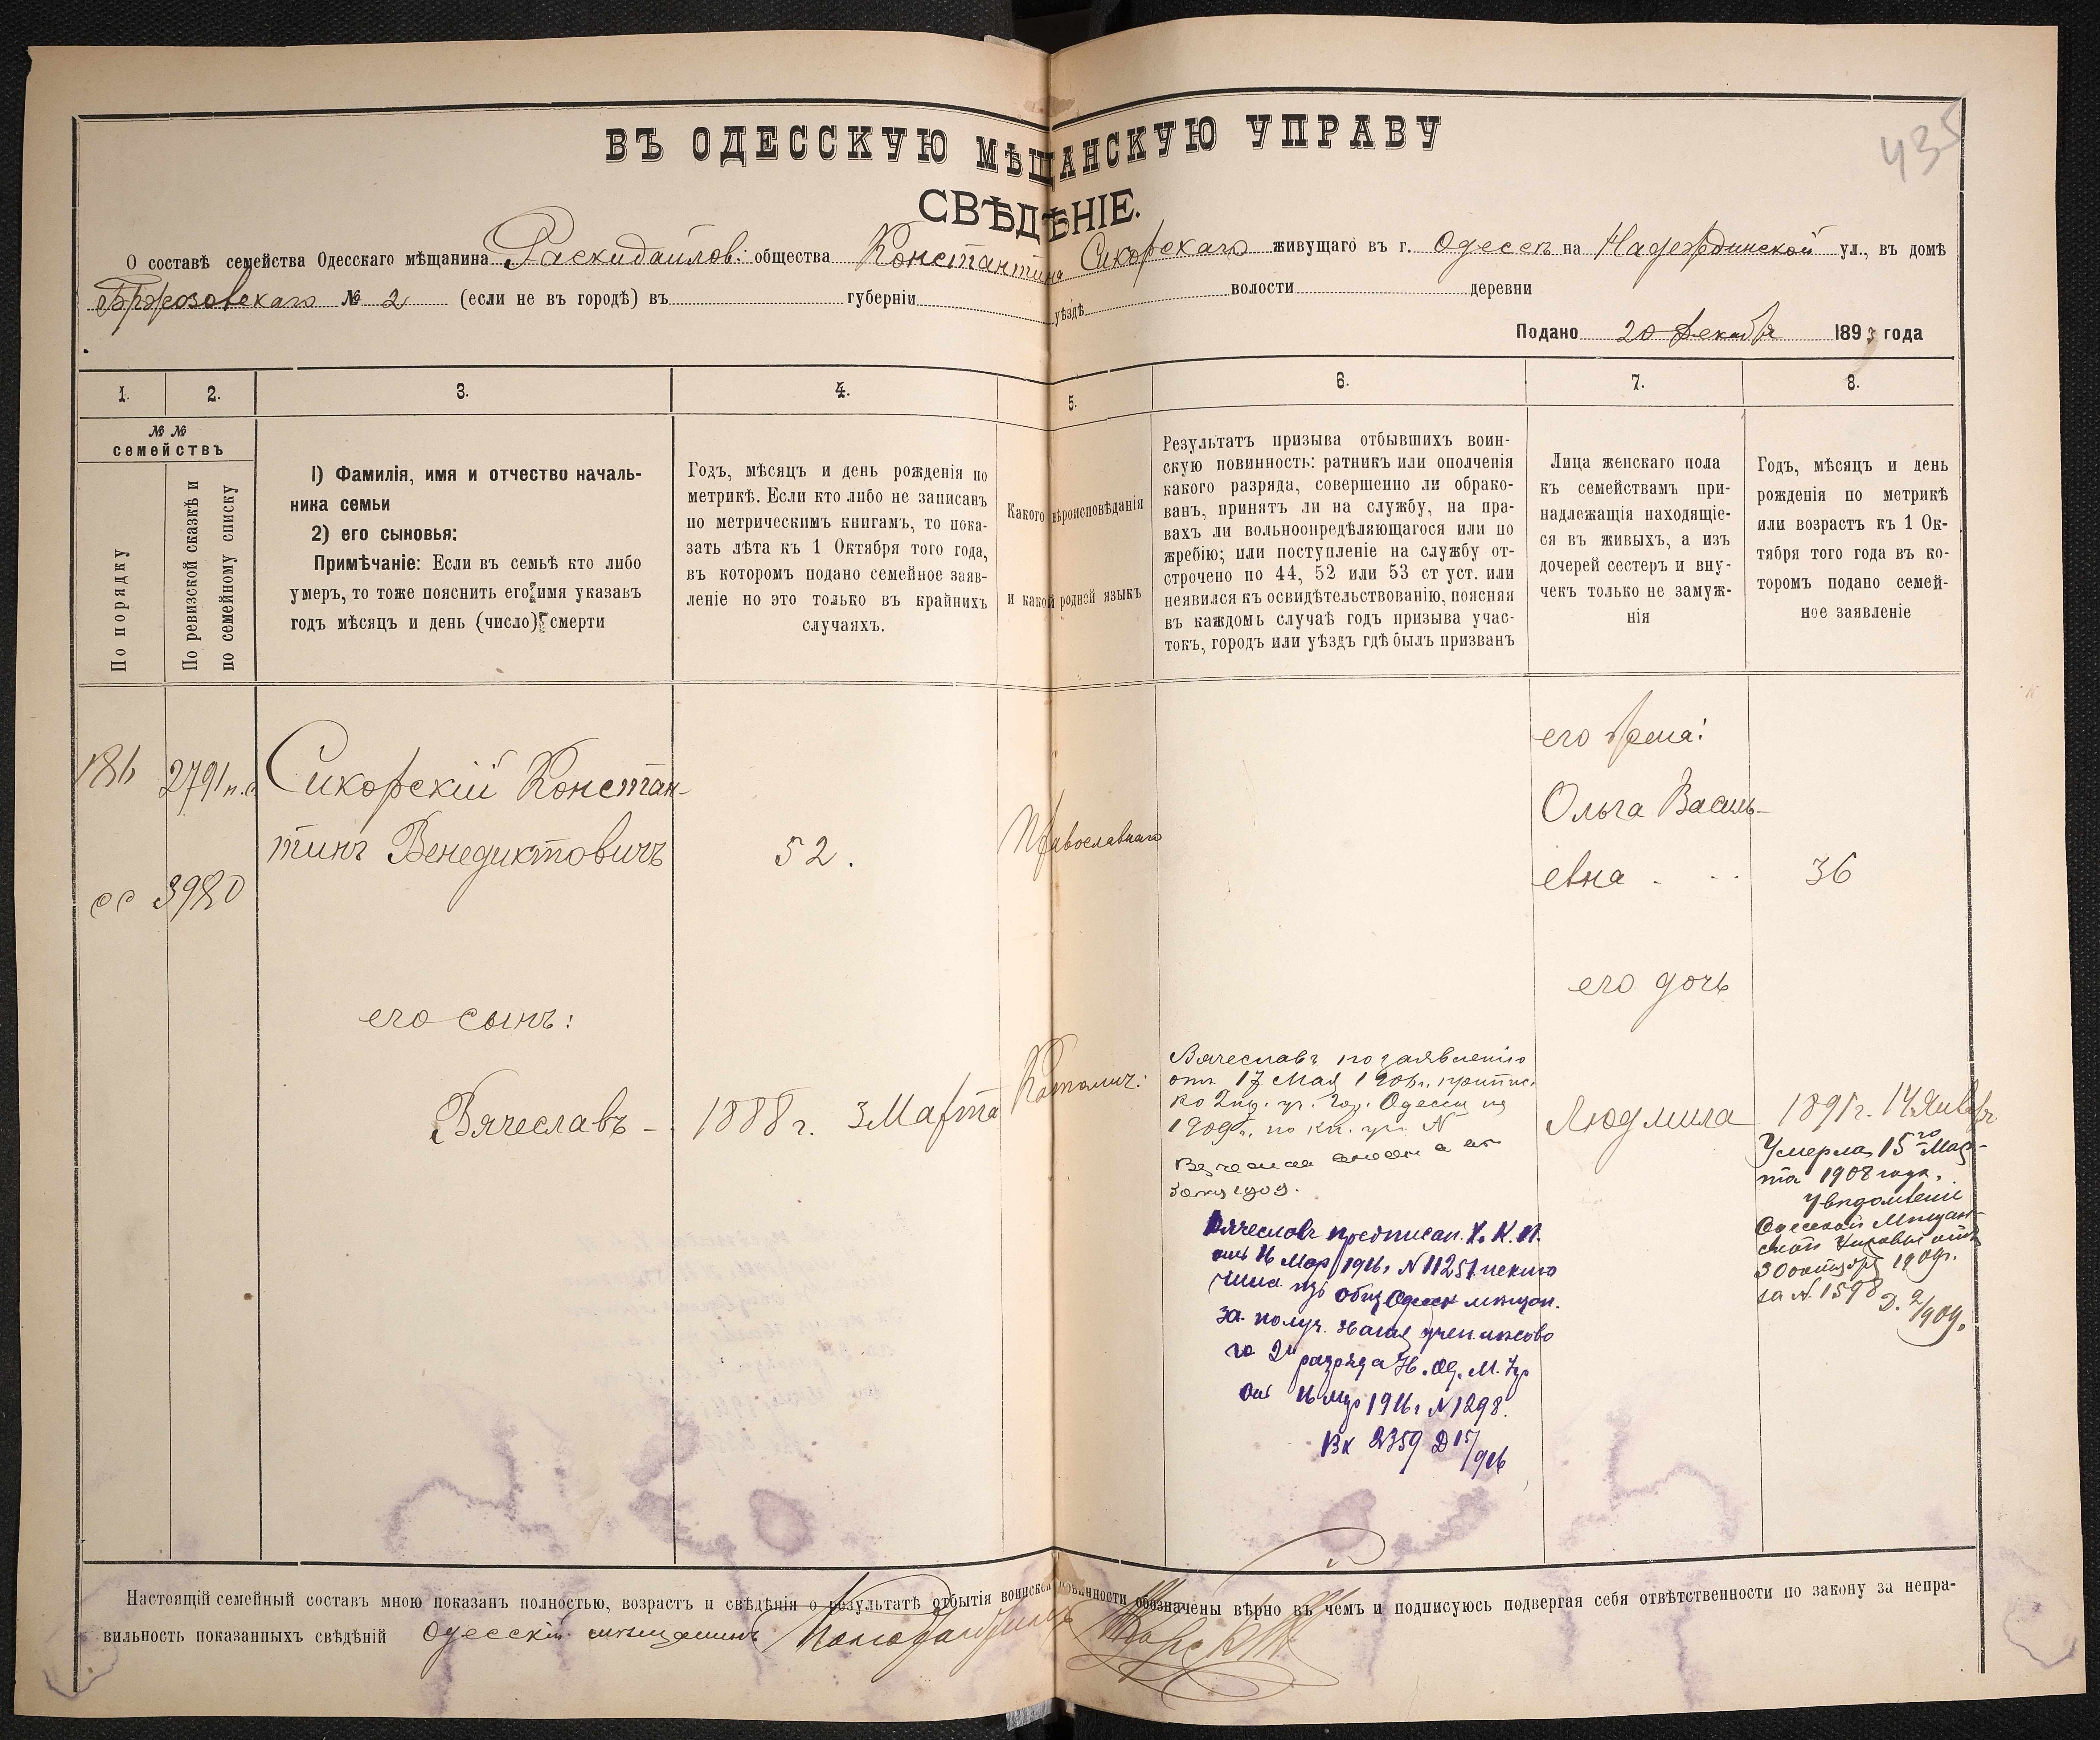 435
ВЪ ОДЕССКУЮ МѢЩАНСКУЮ УПРАВУ
СВѢДѢНІЕ.
О составѣ семейства Одесскаго мѣщанина Раскидайлов: общества Константина Сикорскаго живущаго въ г. Одессѣ на Надеждинской ул., въ домѣ
Бржозовскаго № 2 (если не въ городѣ) въ губерніи уѣздѣ волости деревни
Подано 20 Декабря 1893 года
1. 2. 3. 4. 5. 6. 7. 8.
№ №
семействъ
По порядку
По ревизской сказкѣ и
по семейному списку
1) Фамилія, имя и отчество началь-
ника семьи
2) его сыновья:
Примѣчаніе: Если въ семьѣ кто либо
умеръ, то тоже пояснить его имя указавъ
годъ мѣсяцъ и день (число) смерти
Годъ, мѣсяцъ и день рожденія по
метрикѣ. Если кто либо не записанъ
по метрическимъ книгамъ, то пока-
зать лѣта къ 1 Октября того года,
въ которомъ подано семейное заяв-
леніе но это только въ крайнихъ
случаяхъ.
Какого вѣроисповѣданія
и какой родной языкъ
Результатъ призыва отбывшихъ воин-
скую повинность: ратникъ или ополченія
какого разряда, совершенно ли обрако-
ванъ, принятъ ли на службу, на пра-
вахъ ли вольноопредѣляющагося или по
жребію; или поступленіе на службу от-
строчено по 44, 52 или 53 ст уст. или
неявился къ освидѣтельствованію, поясняя
въ каждомъ случаѣ годъ призыва учас-
токъ, городъ или уѣздъ гдѣ былъ призванъ
Лица женскаго пола
къ семействамъ при-
надлежащія находящіе-
ся въ живыхъ, а изъ
дочерей сестеръ и вну-
чекъ только не замуж-
нія
Годъ, мѣсяцъ и день
рожденія по метрикѣ
или возрастъ къ 1 Ок-
тября того года въ ко-
торомъ подано семей-
ное заявленіе
186 2791 н.с.
сс 3980
Сикорскій Констан-
тинъ Венедиктовичъ
52.
Православнаго
его жена:
Ольга Василь-
евна 36
его сынъ:
Вячеславъ - 1888 г. 3 Марта
Католич:
Вячеславъ по заявленію
отъ 17 Мая 1906г. припис.
ко 2 пр. уч. Гор. Одессы на
1909г., по кн. уч. N
1909.
Вячеславъ предписан. Х. К. П.
отъ 16 Мар 1916г N 11251 исклю
чена изъ общ Одесск мѣщан.
за получ. званія
го 2го разряда Ув. Од. М. Упр
отъ 16 Мар 1916г N 1298.
Вх 2359 Д 15/916
его дочь
Людмила 1891г. 14 Января
Умерла 15го Мар-
та 1908 года.
Увѣдомленіе
Одесской Мѣщан-
ской Управы отъ
30 октября 1909г.
за N 1598 Д. 2/909.
Настоящій семейный составъ мною показанъ полностью, возрастъ и свѣдѣнія о результатѣ отбытія воинской повинности обозначены вѣрно въ чемъ и подписуюсь подвергая себя отвѣтственности по закону за непра-
вильность показанныхъ свѣдѣній Одесскій мѣщанинъ Константинъ